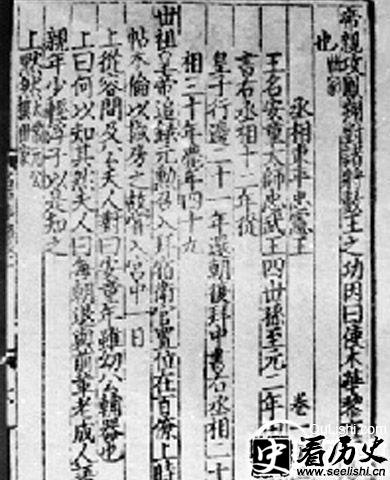 帝親攻鳳翔對諸將數王之功因曰使木華黎
也 世家
丞相東平忠憲王
王名安童太師忠武王四世孫至元二年 卷
書右丞相十二年從
皇子行邊二十一年還朝復拜中書右丞相二十
相三十年薨年四十九
世祖皇帝追録元勳召入宿衛官位在百僚上時
帖木倫以掖房之故嘗入宮中一日
上從容問及公夫人對曰安童年雖幼公輔器也
上曰何以知其然夫人曰每朝退與前輩老成人語
親年少輕浮子以是知之
上默然 元公撰世家
史 看历史
www.seelishi.com